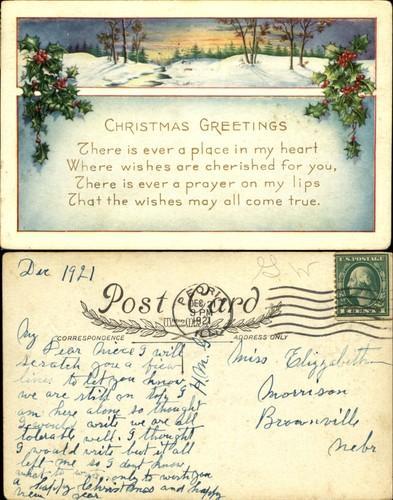 CHRISTMAS GREETINGS
There is ever a place in my heart
Where wishes are cherished for you,
There is ever a prayer on my lips
That the wishes may all come true.
Dec 1921
G W
Post Card
PEORI
DEC 21
9 PM
1921
U.S. POSTAGE
1 CENT 1
CORRESPONDENCE
ADDRESS ONLY
My Dear niece I will
scratch you a few
lines to let you know
we are still on top. I
am here alone so thought
I would write we are all
tolerable well. I thought
I would write but it all
left me so I dont know
what to say only to wish you
a happy Christmas and happy
new year
Miss Elizzabeth
Morrison
Brownville
Nebr